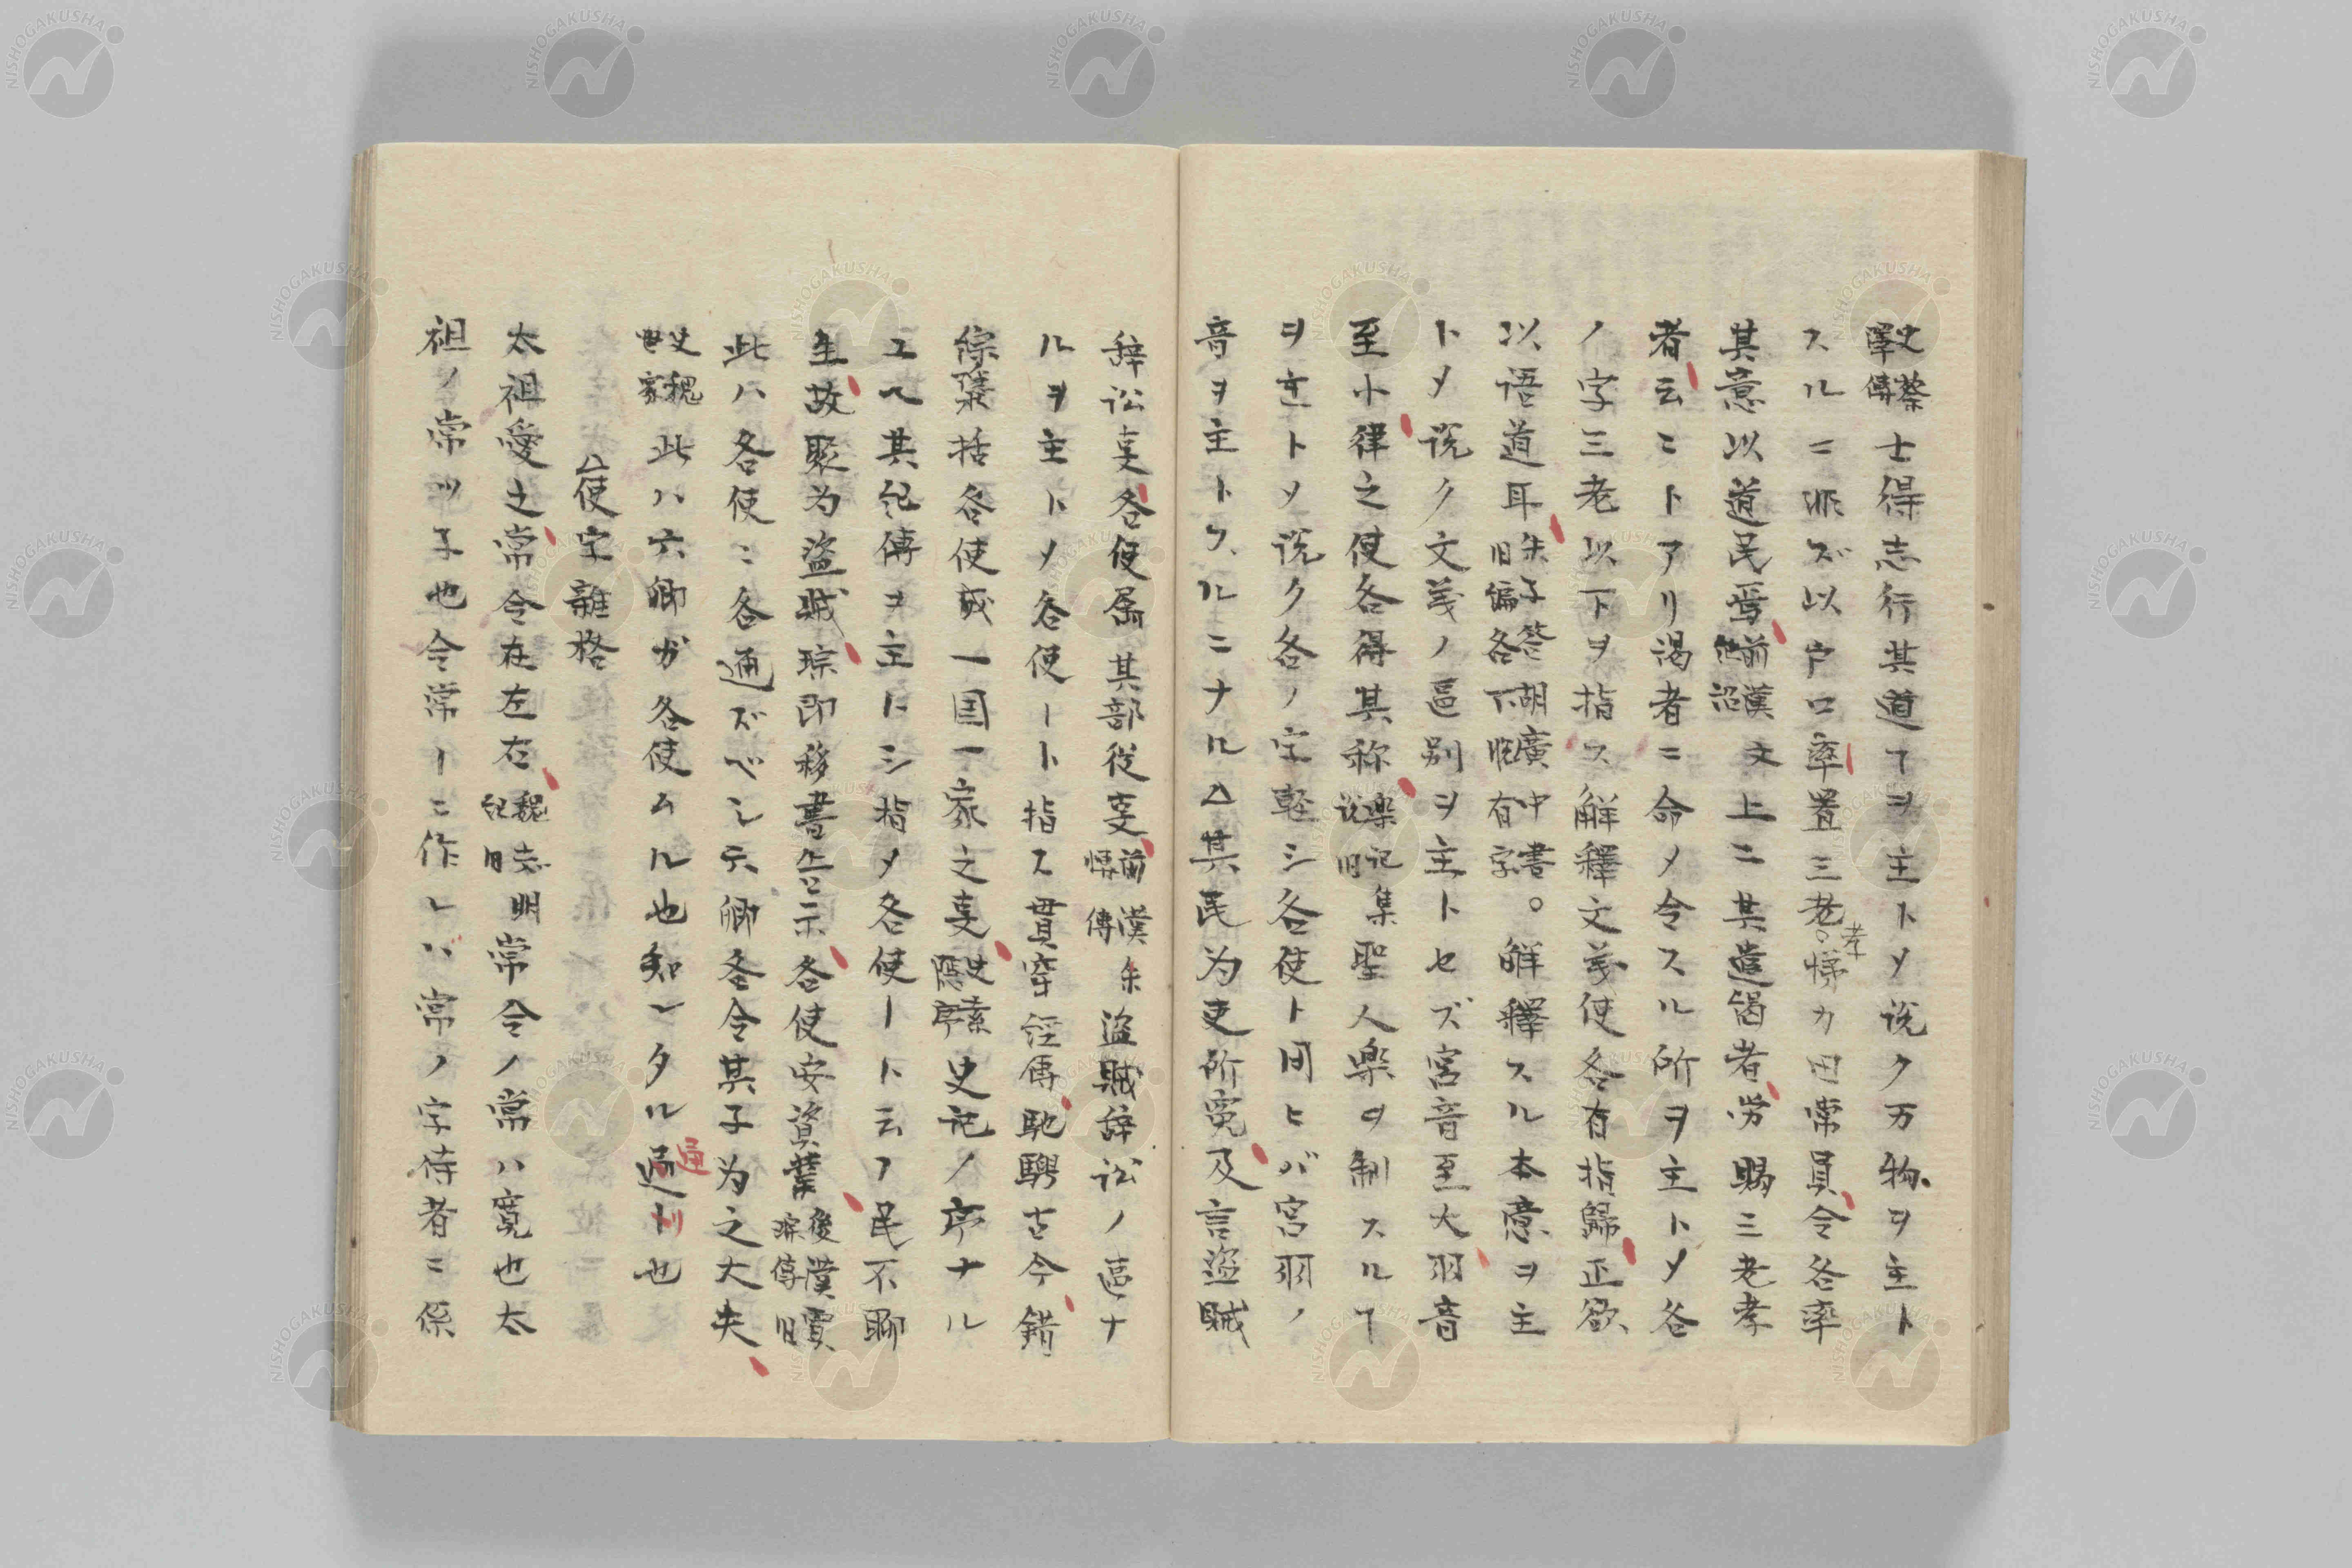 史蔡澤傳士得志行其道ヿヲ主トメ説ク万物ヲ主ト
スルニ非ズ以戸口率置三老孝悌力田常員令各率
其意以道民焉前漢文紀詔文上ニ其遣謁者労賜三老孝
者云ニトアリ謁者ニ命メ令スル所ヲ主トメ各
ノ字三老以下ヲ指ス解釋文義使各有指歸正欲
以語道耳朱子答胡廣中書旧偏各下脱有字。解釋スル本意ヲ主
トメ説ク文義ノ區別ヲ主トセズ宮音至大羽音
至小律之使各得其称楽記集説旧聖人楽ヲ制スルヿ
ヲ主トメ説ク各ノ字軽シ各使ト问ヒバ宮羽ノ
音ヲ主トスルニナル△其民为吏所冤及言盗賊
辞讼事各使属其部従事前漢朱博傳盗賊辞讼ノ區ナ
ルヲ主トメ各使ート指ス貫穿経傳馳騁古今錯
綜隳括各使成一国一家之事史索隠序史记ノ序ナル
ユヘ其紀傳ヲ主トシ指メ各使ート云フ民不聊
生故聚为盗賊琮即移書告示各使安資業後漢賈琮傳旧
此ハ各使ニ各通ズベシ六卿各令其子为之大夫
史魏世家此ハ六卿ガ各使ムル也知ンタル通ト也
△使字離格
太祖愛之常令在左右魏志紀旧明常令ノ常ハ寛也太
祖ノ常ツ子也令常ーニ作レハ常ノ字侍者ニ係
通